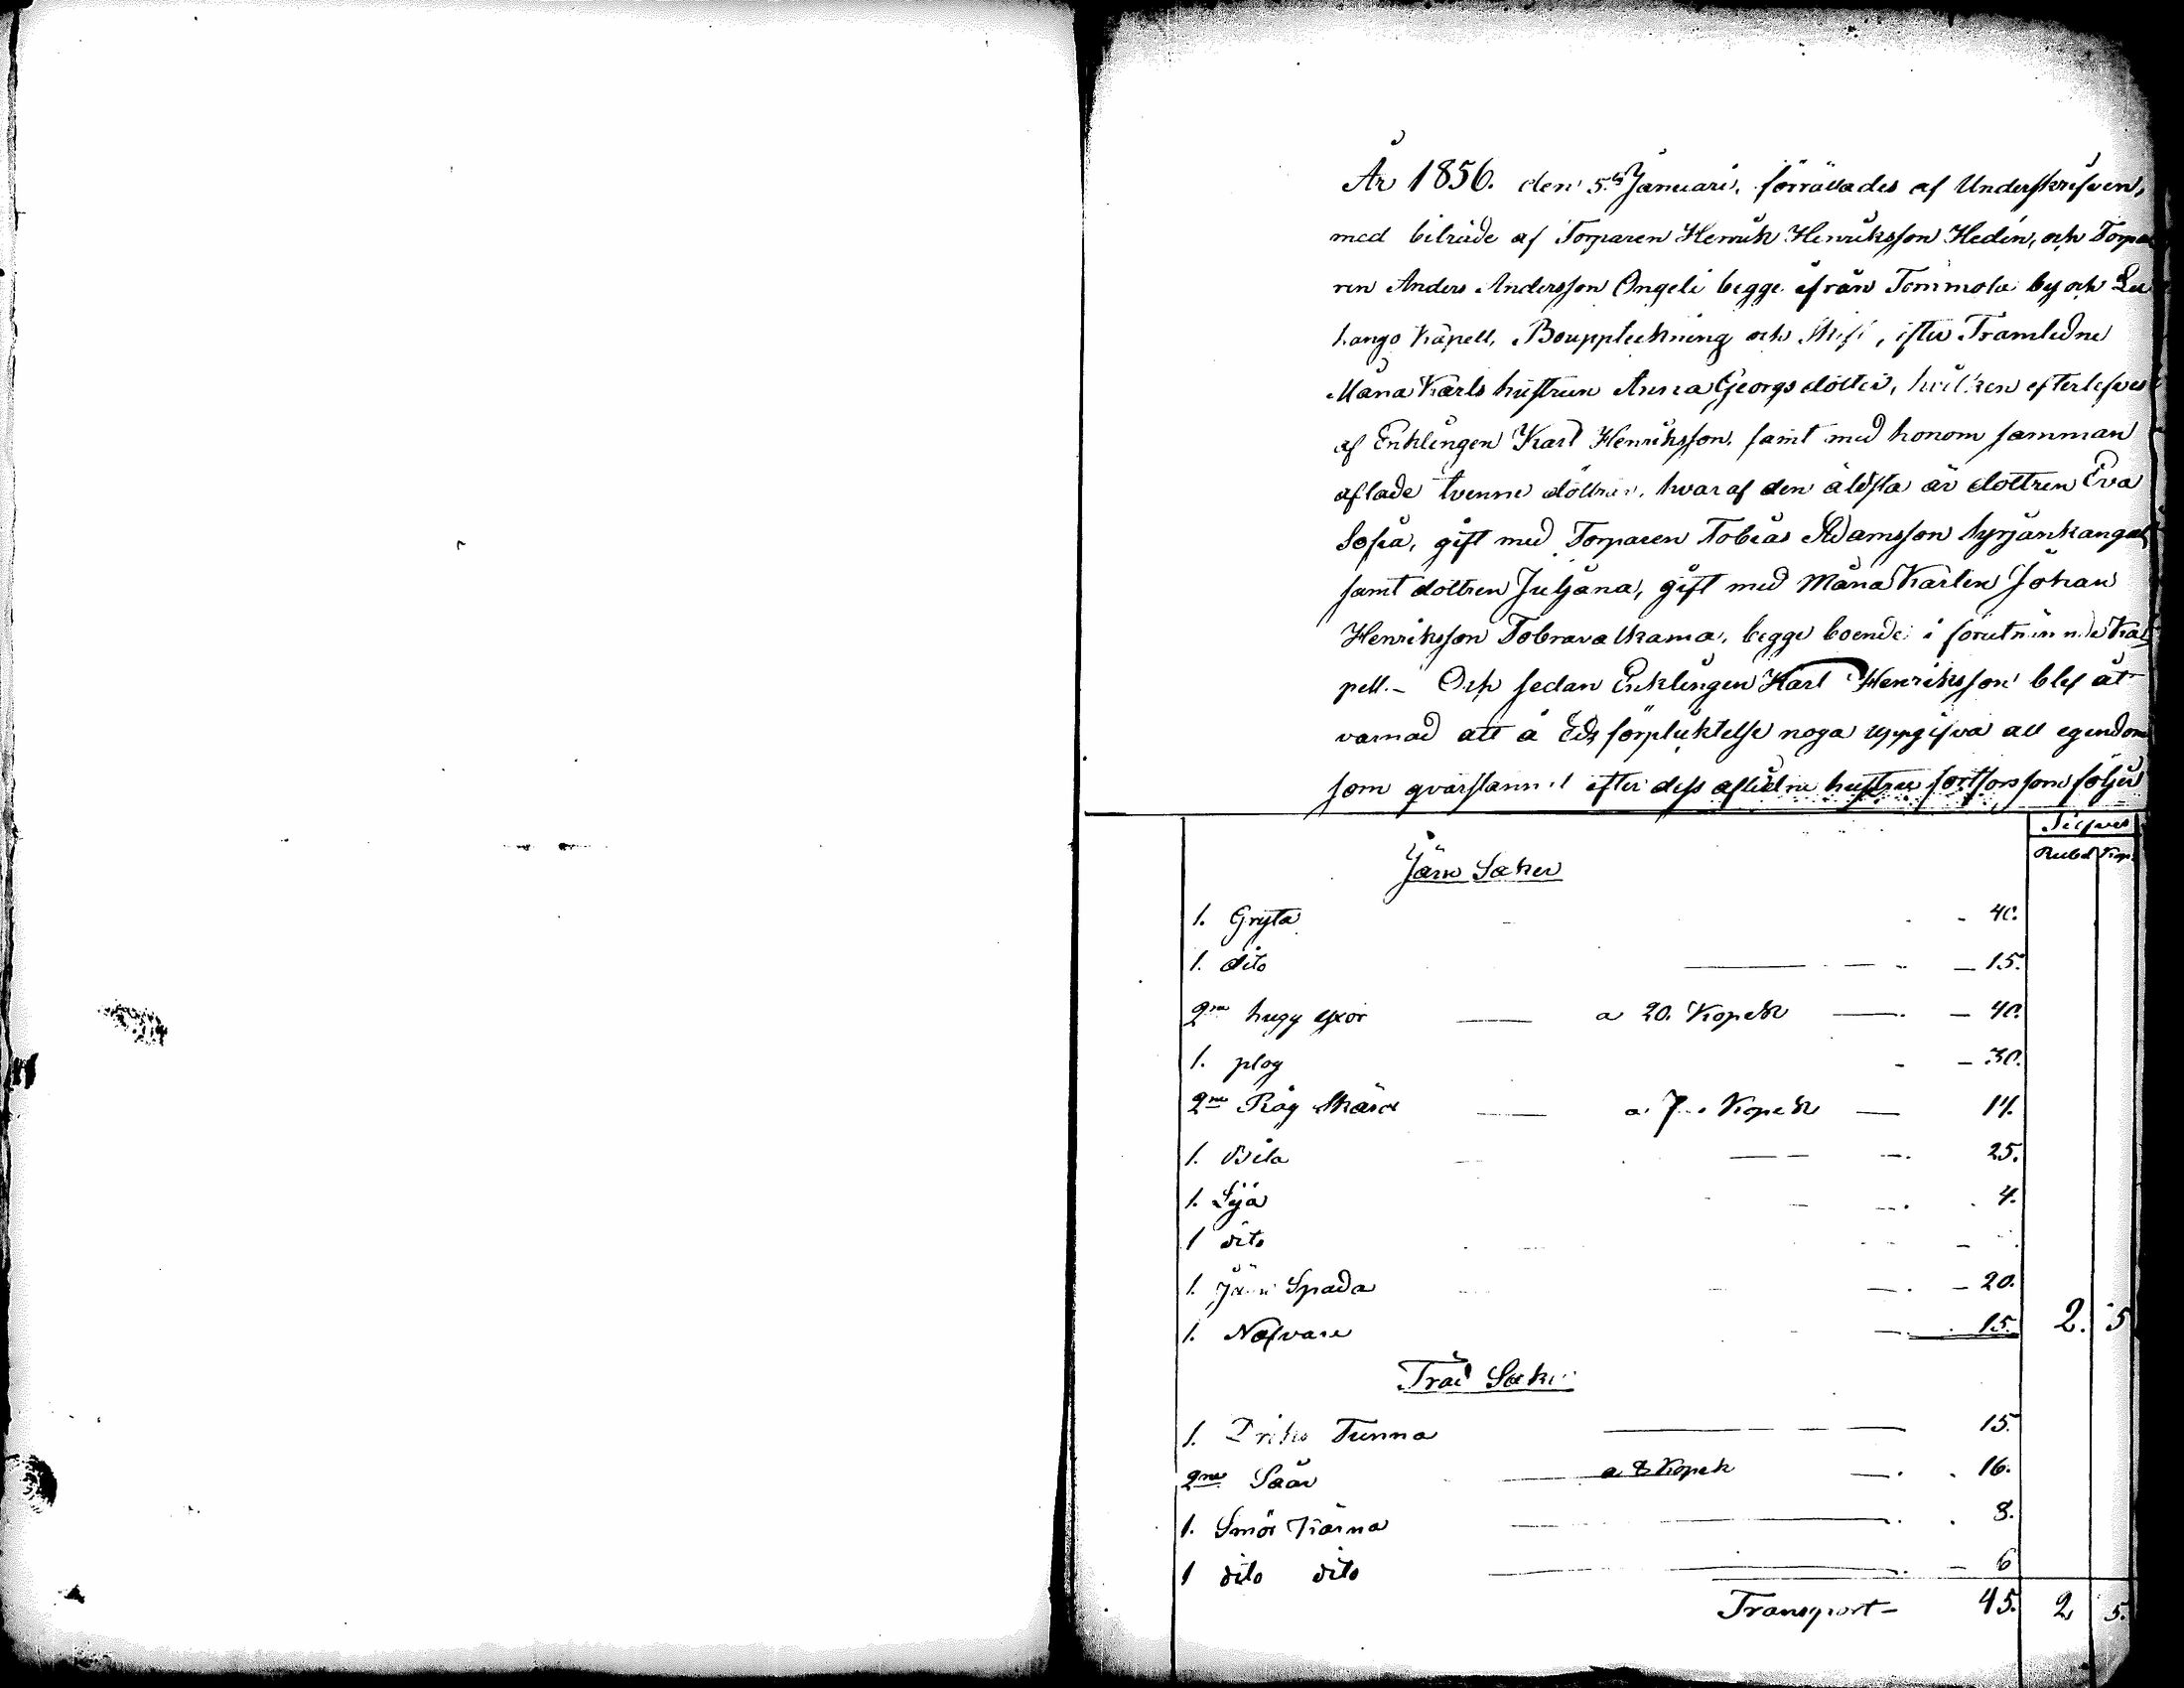 År 1856. den 5.te Januari, förrättades af Underskrifven,
med biträde af Torparen Henrik Henriksson Hedén, och Torpa
ren Anders Andersson Ongeli begge ifrån Tommola by och Lu
hango Kapell, Bouppteckning och skift, efter Framledne
Måna Karls hustrun Anna Georgsdotter, hvilken efterlefves
af Enklingen Karl Henriksson, samt med honom samman
aflade tvenne döttrar, hvaraf den äldsta är dottren Eva
Sofia, gift med Torparen Tobias Adamsson Syrjänkangas
samt dottren Juljana, gift med Måna Karlen Johan
Henriksson, begge boende i förutnämnde Ka
pell. – Och sedan Enklingen Karl Henriksson blef åt
varnad att å Eds förpliktelse noga uppgifva all egendom
som qvarstannat efter dess aflidne hustru fortfors som följer
Silfver
Rubel Kop.
Järn Saker
1. Gryta - 40.
1. dito - 15.
2ne hugg yxor a 20. Kopek - 40.
1. plog - 30.
2ne Råg Skäror a 7. Kopek 14.
1. Bila 25.
1. Lija 4.
1 dito
1. Järn Spada - 20.
1. Nafvare 15. 2. 5
Träd Saker
1. Dricks Tunna 15.
2ne Såar a 8 Kopek 16.
1. Smör Kärna 8.
1 dito dito - 6
Transport - 45. 2 5.